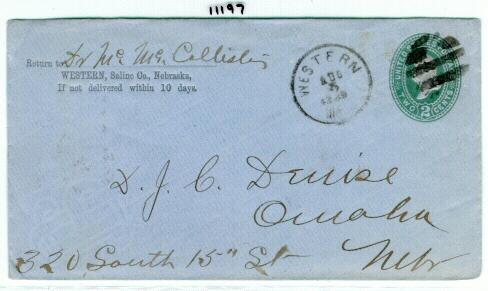 11197
Return to Dr Mc Mc Collister
WESTERN, Saline Co., Nebraska,
If not delivered within 10 days.
WESTERN
AUG
UNITED
TWO 2 CENTS
D. J. C. Denise
Omaha
320 South 15" St Nebr